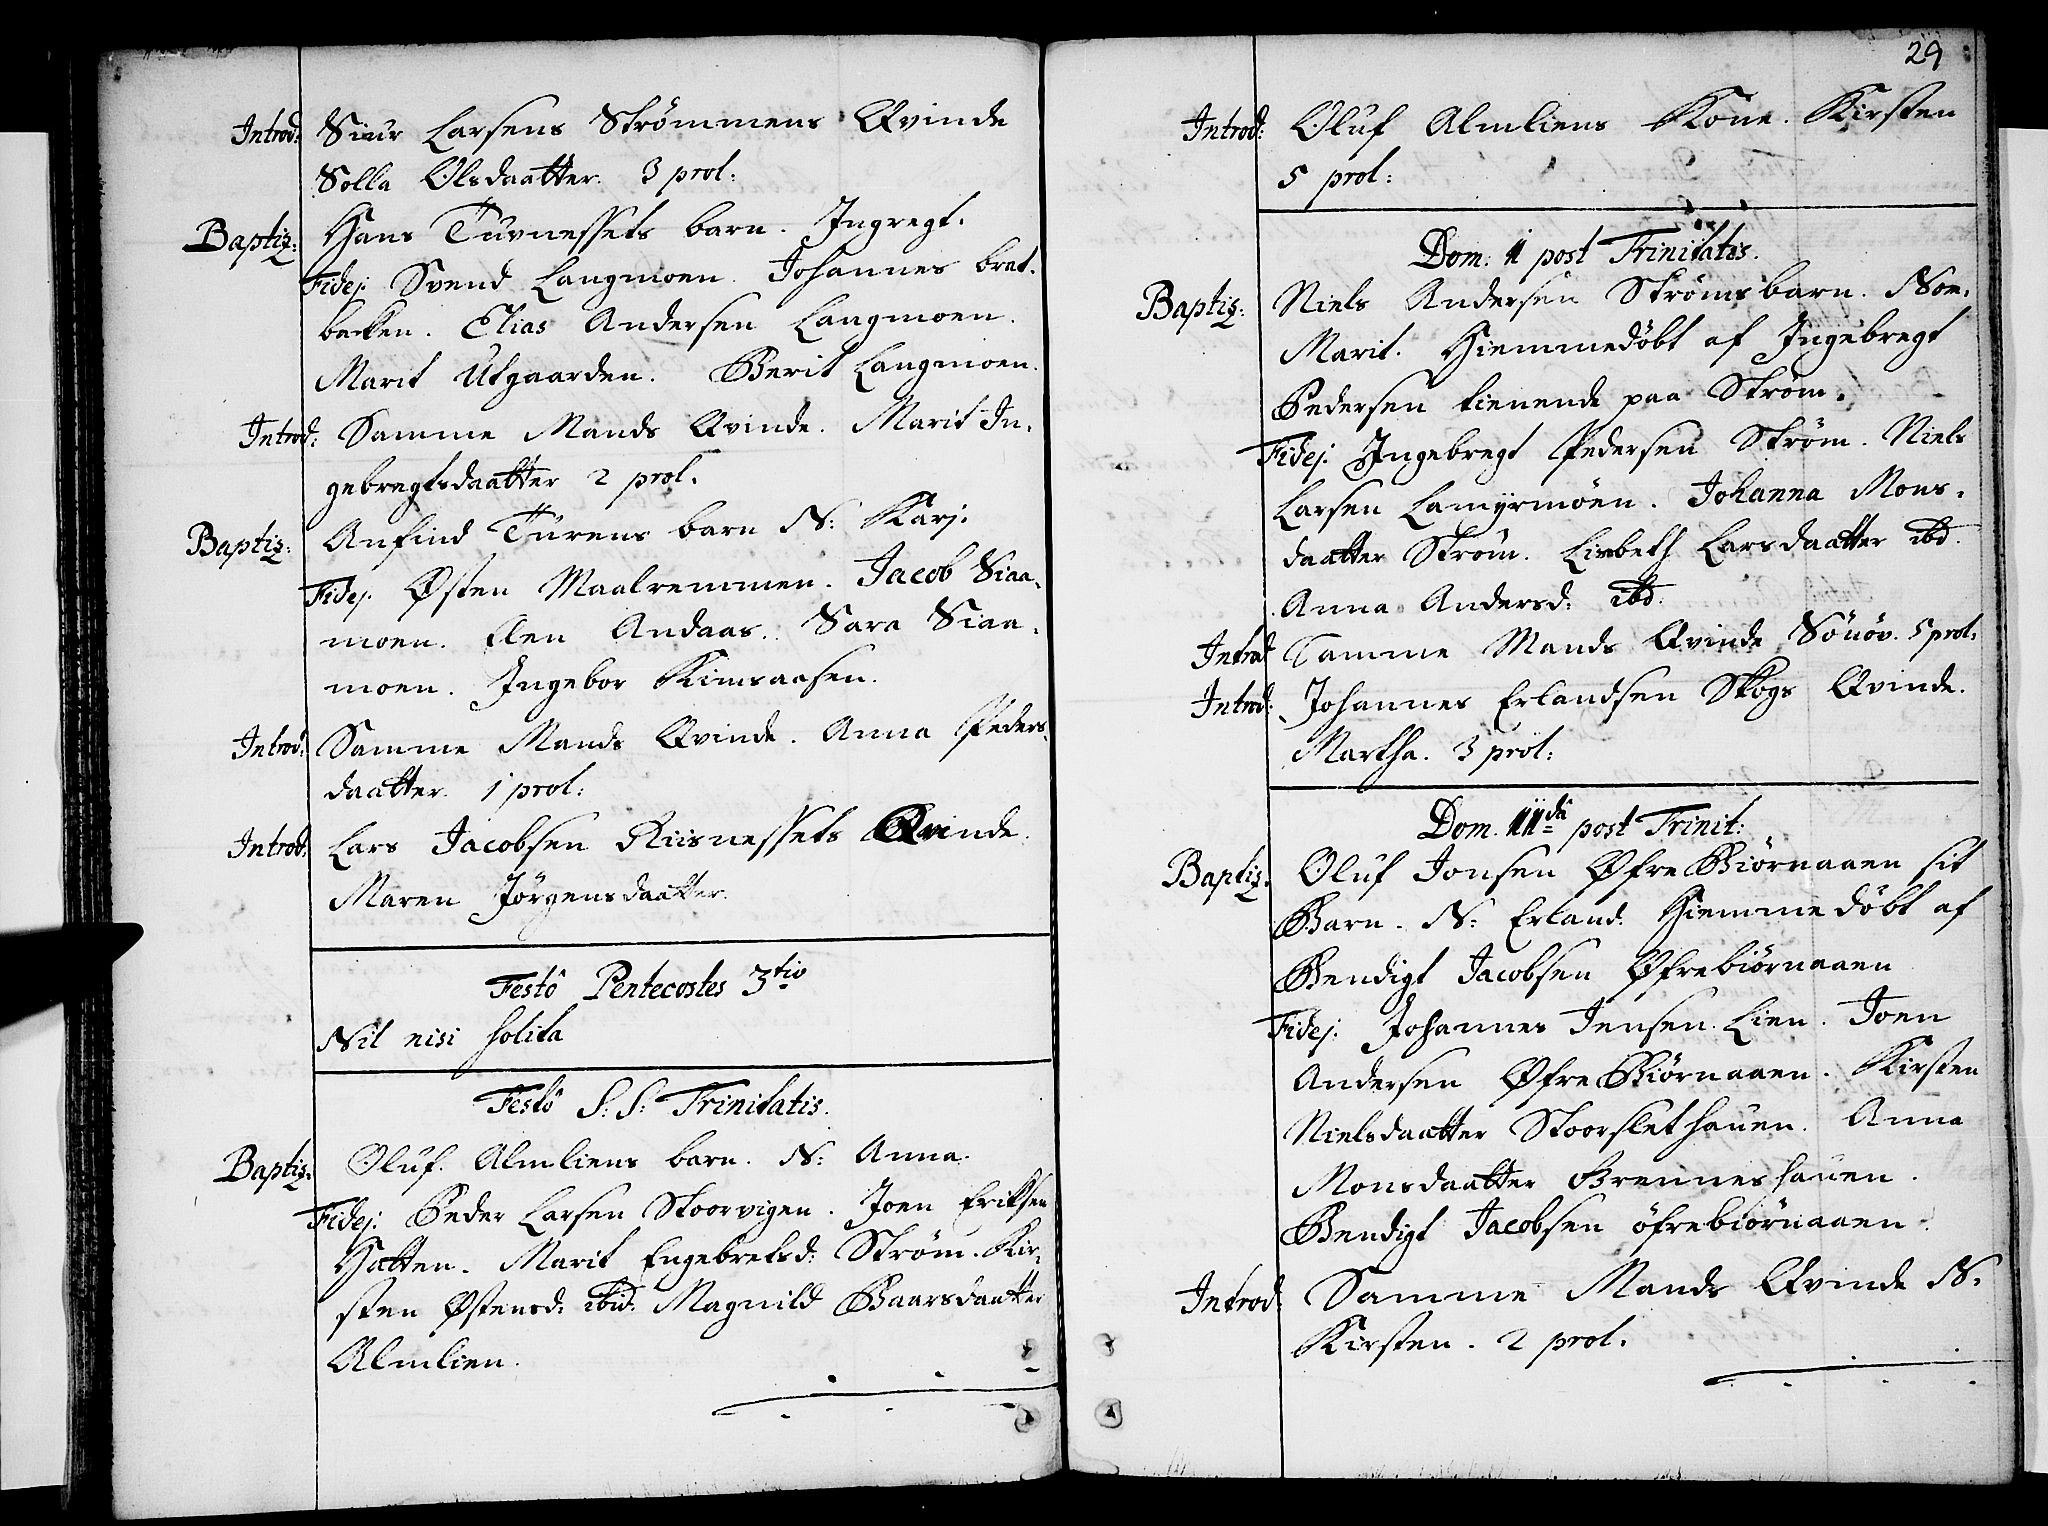 Introd: Siur Larsens Strømmens Qvinde
Solla Olsdaatter. 3 prol:
Baptiz: Hans Turnessets barn. Ingregt.
Fidej: Svend Langmoen. Johannes brat-
becken. Elias Andersen Langmoen.
Marit Utgaarden. Berit Langmoen.
Introd: Samme Mands Qvinde. Marit In-
gebregtsdaatter 2 prol.
Baptiz: Anfind Turens barn N: Karj.
Fidej: Østen Maalremmen. Jacob Siaa-
moen. Elen Andaas. Sara Siaa-
moen. Ingebor Kimsaasen.
Introd: Samme Mands Qvinde. Anna Peders-
daatter. 1 prol:
Introd: Lars Jacobsen Riisnessets Qvinde.
Maren Jørgensdaatter.
Festô Pentecostes 3tio
Nil nisi solita
Festô S: S: Trinitatis.
Baptiz: Oluf Almliens barn. N: Anna.
Fidej: Peder Larsen Stoorvigen. Joen Eriksen
Hatten. Marit Engebretsd: Strøm. Kir-
sten Østensd: ibid: Magnild Baarsdaatter
Almlien.
29
Introd: Oluf Almliens Kone. Kirsten
5 prol:
Dom: 1 post Trinitatis.
Baptiz: Niels Andersen Strøms barn. Nom.
Marit. Hiemmedøbt af Ingebregt
Pedersen tienende paa Strøm.
Fidej: Ingebregt Pedersen Strøm. Niels
Larsen Lamyrmoen. Johanna Mons-
daatter Strøm. Lisbeth Larsdaatter ibd.
Anna Andersd: ibd.
Introd Samme Mands Qvinde Sønøv. 5 prol.
Introd: Johannes Erlandsen Skogs Qvinde.
Martha. 3 prol:
Dom. IIda post Trinit:
Baptiz: Oluf Jonsen Øfre Biørnaaen sit
Barn. N: Erland. Hiemmedøbt af
Bendigt Jacobsen Øfrebiørnaaen
Fidej: Johannes Jensen Lien. Joen
Andersen Øfre Biørnaaen. Kirsten
Nielsdaatter Stoorslethauen. Anna
Monsdaatter Brenneshauen.
Bendigt Jacobsen øfrebiørnaaen.
Introd: Samme Mands Qvinde N.
Kirsten. 2 prol.